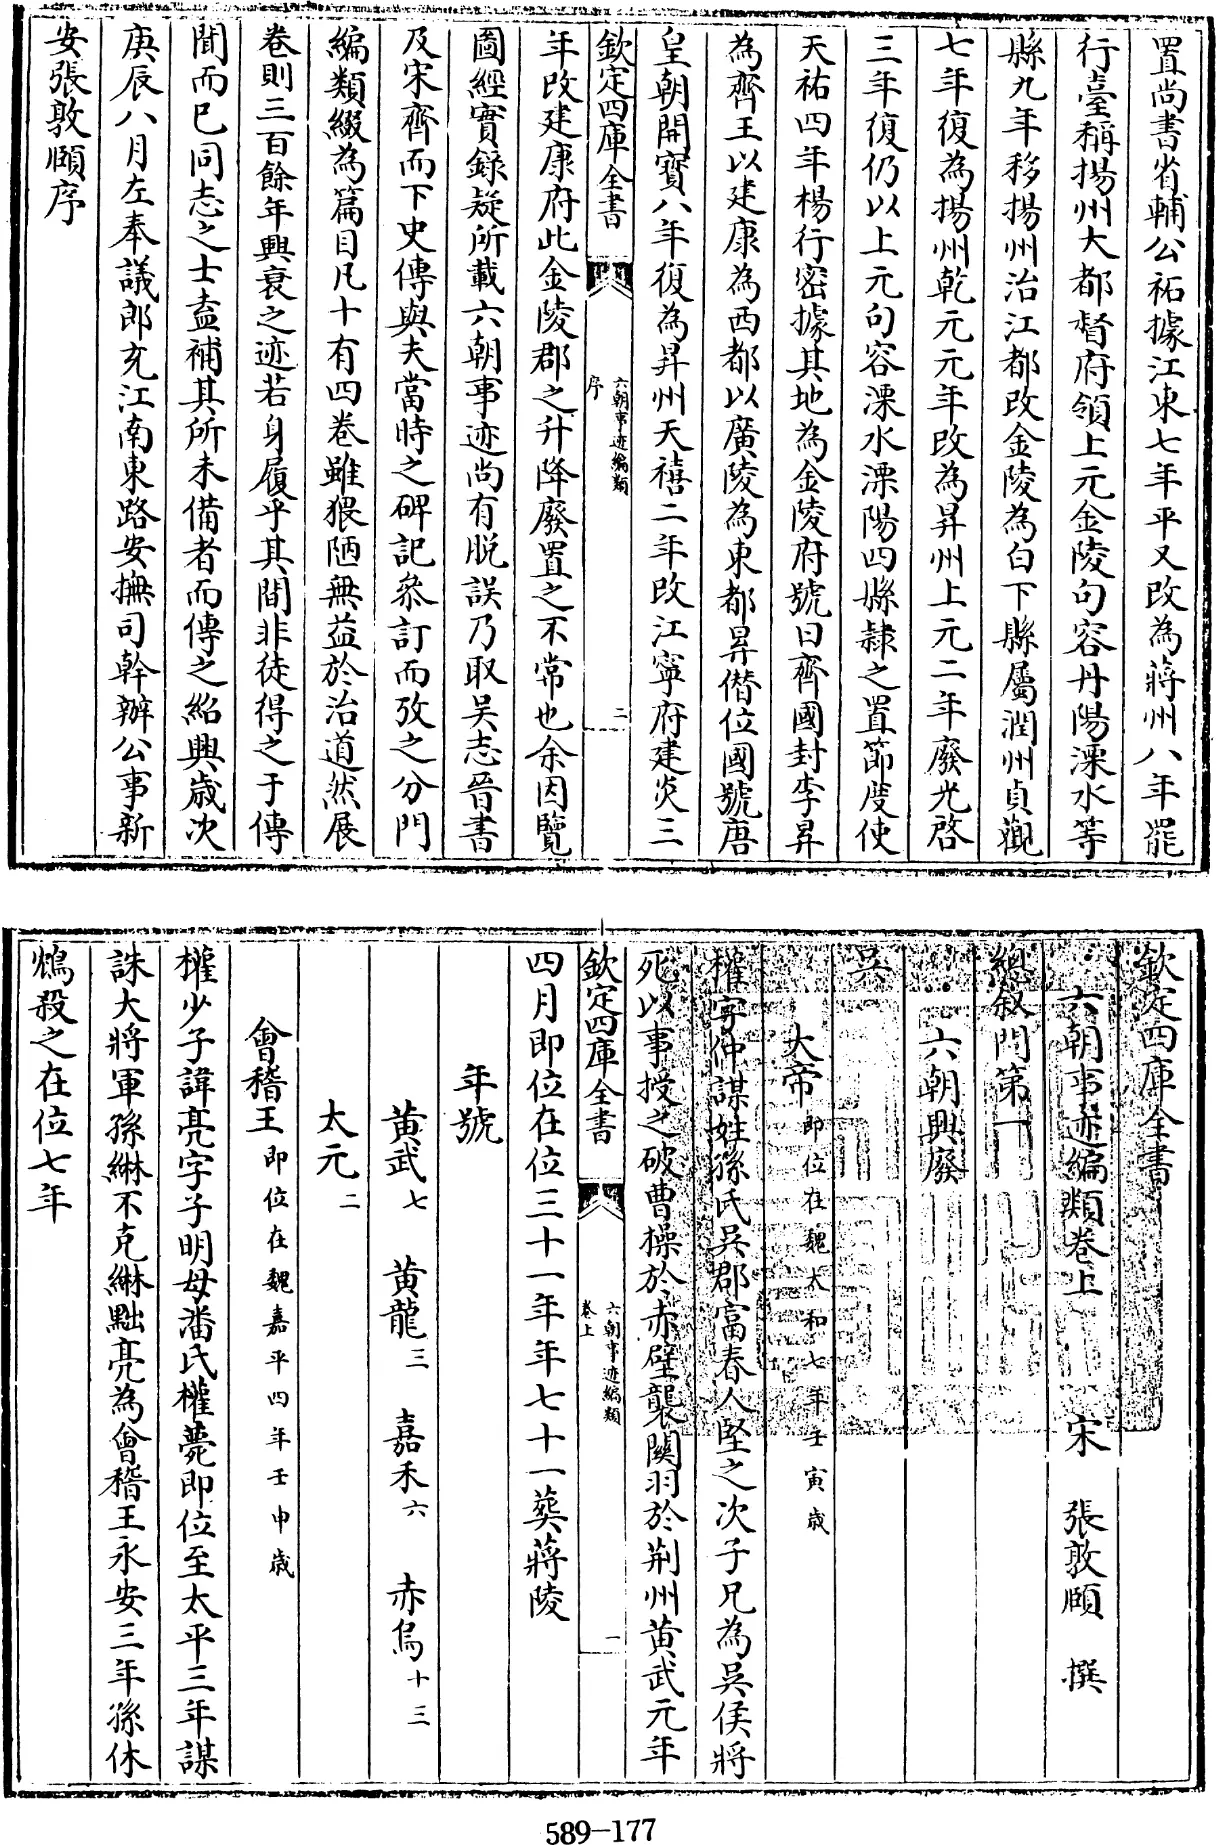 置尚書省輔公祏據江東七年平又改為蔣州八年罷
行臺稱揚州大都督府領上元金陵句容丹陽溧水等
縣九年移揚州治江都改金陵為白下縣屬潤州貞觀
七年復為揚州乾元元年改為昇州上元二年廢光啓
三年復仍以上元句容溧水溧陽四縣隸之置節度使
天祐四年楊行密據其地為金陵府號曰齊國封李昇
為齊王以建康為西都以廣陵為東都昇僣位國號唐
皇朝開寳八年復為昇州天禧二年改江寧府建炎三
欽定四庫全書
六朝事迹編類
序
二
年改建康府此金陵郡之升降廢置之不常也余因覽
圖經實録疑所載六朝事迹尚有脱誤乃取吴志晉書
及宋齊而下史傳與夫當時之碑記叅訂而攷之分門
編類綴為篇目凡十有四卷雖猥陋無益於治道然展
卷則三百餘年興衰之迹若身履乎其間非徒得之于傳
聞而已同志之士盍補其所未備者而傳之紹興歲次
庚辰八月左奉議郎充江南東路安撫司幹辦公事新
安張敦頤序
欽定四庫全書
六朝事迹編類卷上　宋　張敦頤　撰
總叙門第一
六朝興廢
吴
大帝即位在魏太和七年壬寅歲
權字仲謀姓孫氏吴郡富春人堅之次子兄為吴侯將
死以事授之破曹操於赤壁襲關羽於荆州黄武元年
欽定四庫全書
六朝事迹編類
卷上
一
四月即位在位三十一年年七十一葬蔣陵
年號
黄武七　黄龍三　嘉禾六　赤烏十三
太元二
會稽王即位在魏嘉平四年壬申歲
權少子諱亮字子明母潘氏權薨即位至太平三年謀
誅大將軍孫綝不克綝黜亮為會稽王永安三年孫休
鴆殺之在位七年
589-177